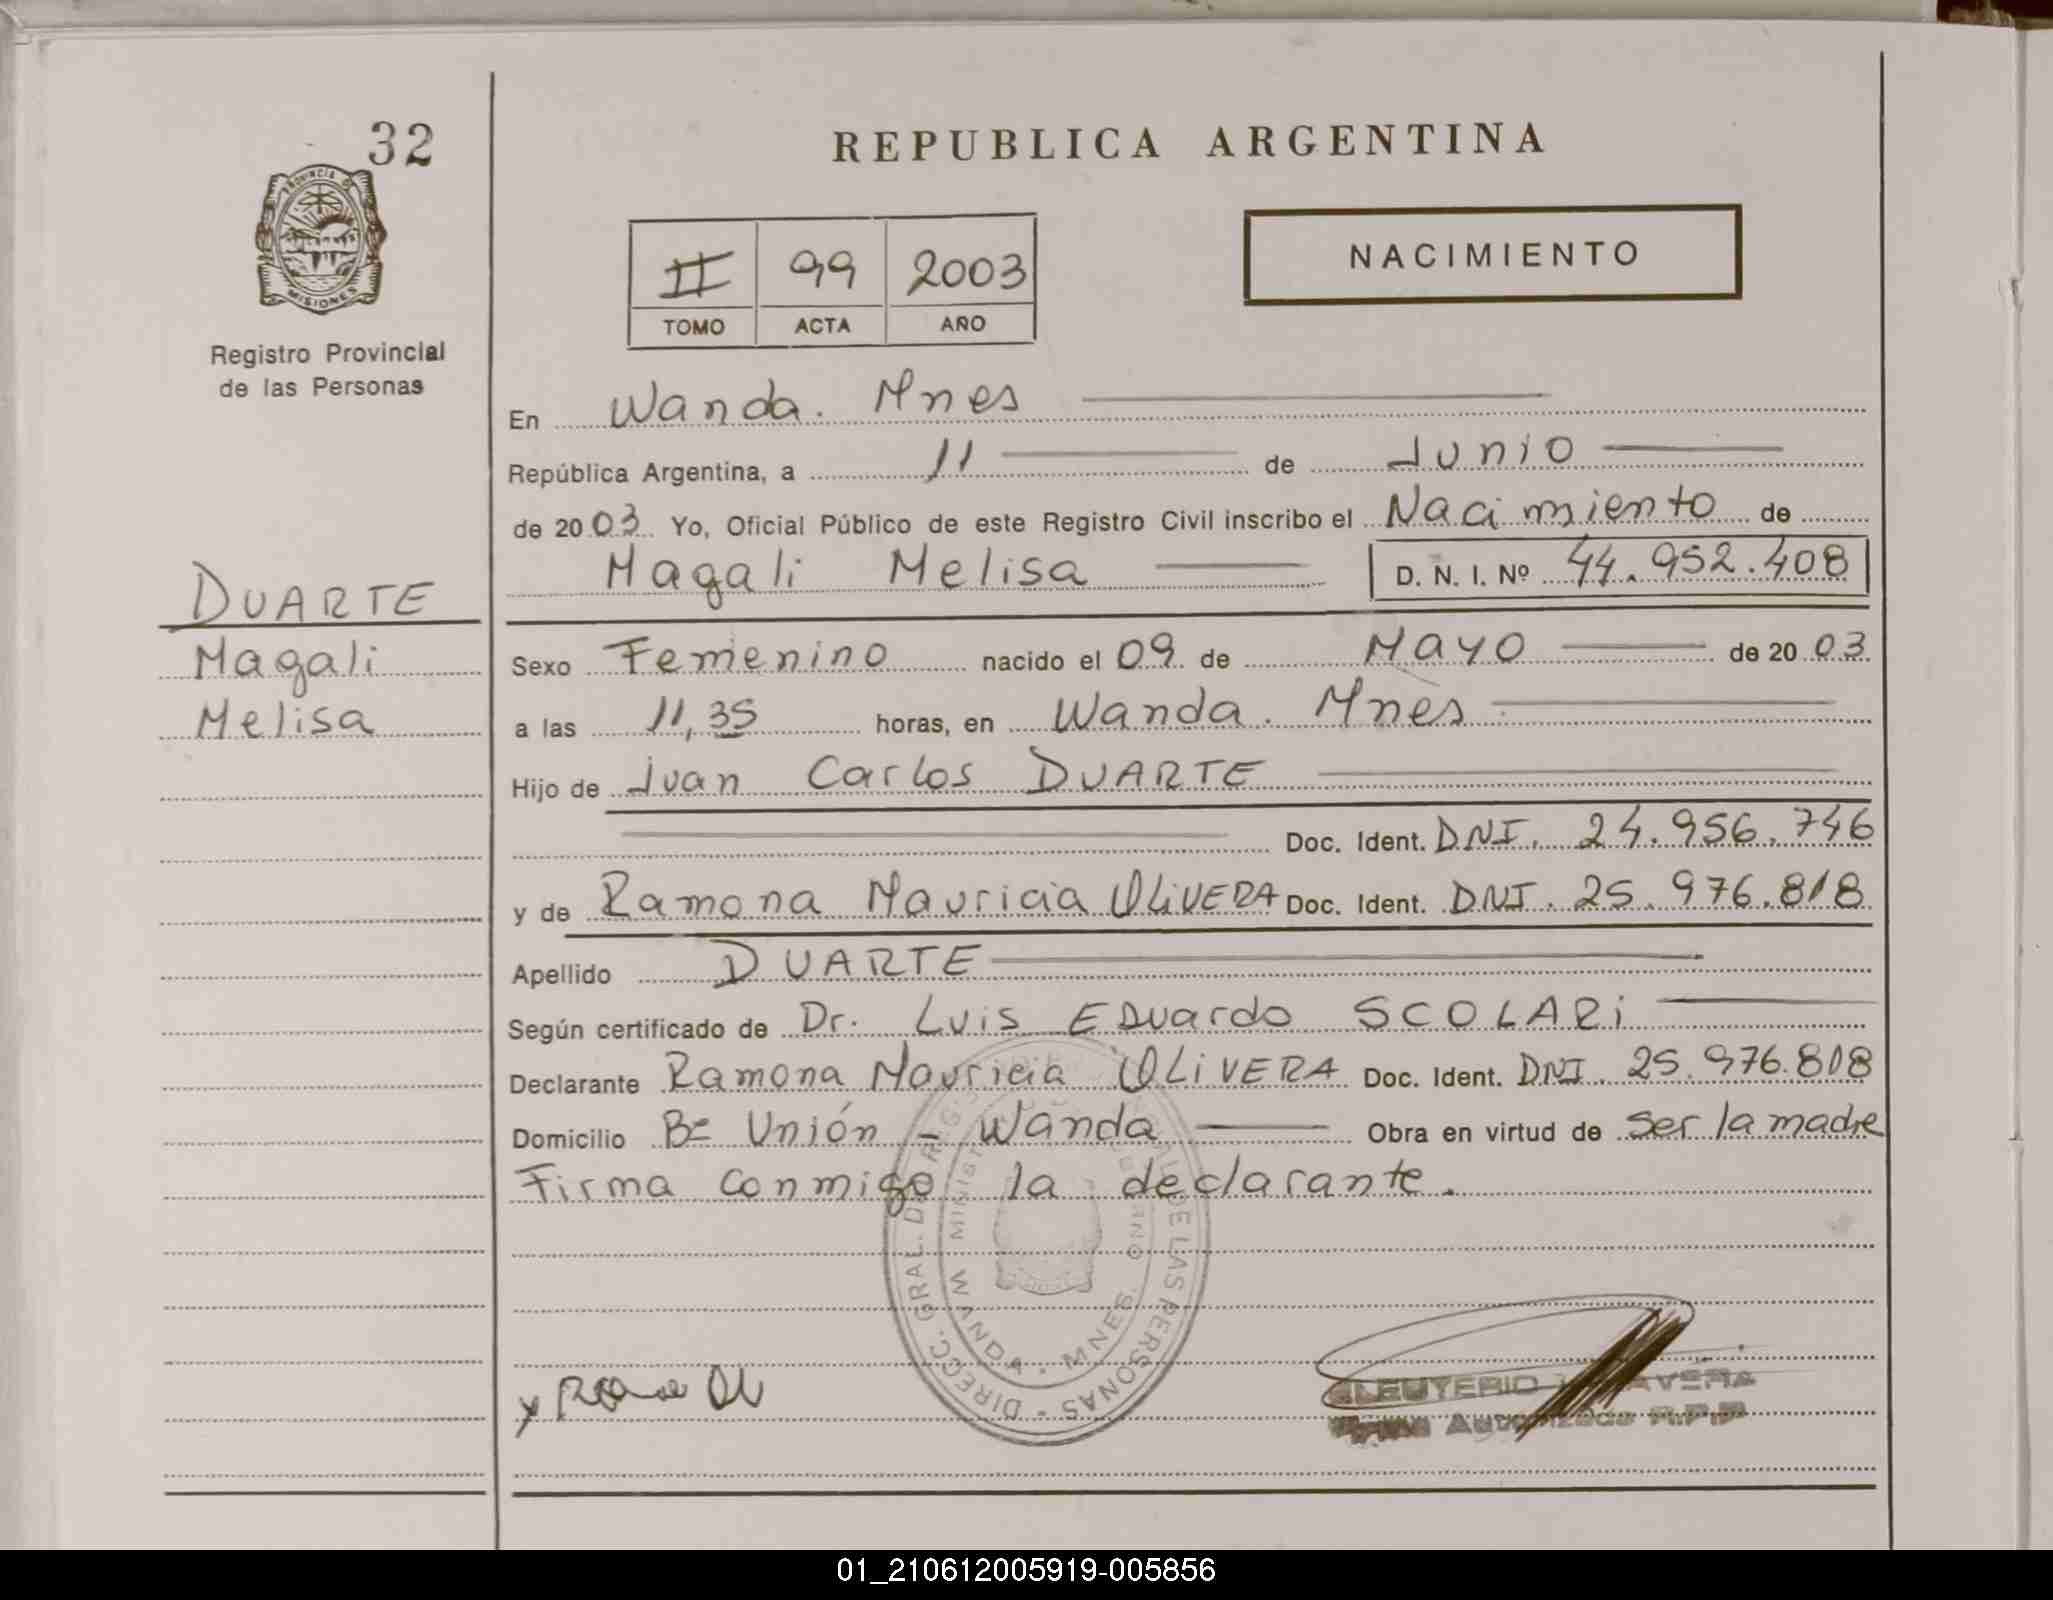 32
REPUBLICA ARGENTINA
PROVINCIA DE
MISIONES
II 99 2003
TOMO ACTA AÑO
NACIMIENTO
Registro Provincial
de las Personas
En Wanda. Mnes
República Argentina, a 11 de Junio
de 2003 Yo, Oficial Público de este Registro Civil inscribo el Nacimiento de
Magali Melisa D. N. I. Nº 44.952.408
DUARTE
Magali
Melisa
Sexo Femenino nacido el 09 de MAYO de 2003
a las 11,35 horas, en Wanda. Mnes
Hijo de Juan Carlos DUARTE
Doc. Ident. DNI. 24.956.746
y de Ramona Mauricia OLIVERA Doc. Ident. DNI. 25.976.818
Apellido DUARTE
Según certificado de Dr. Luis EDuardo SCOLARi
Declarante Ramona Mauricia OLIVERA Doc. Ident. DNI. 25.976.808
Domicilio Bº Unión - Wanda Obra en virtud de ser la madre
Firma conmigo la declarante.
DIRECC. GRAL. DE LAS PERSONAS
WANDA - MNES.
ELEUTERIO
Autorizada R.P.P.
01_210612005919-005856